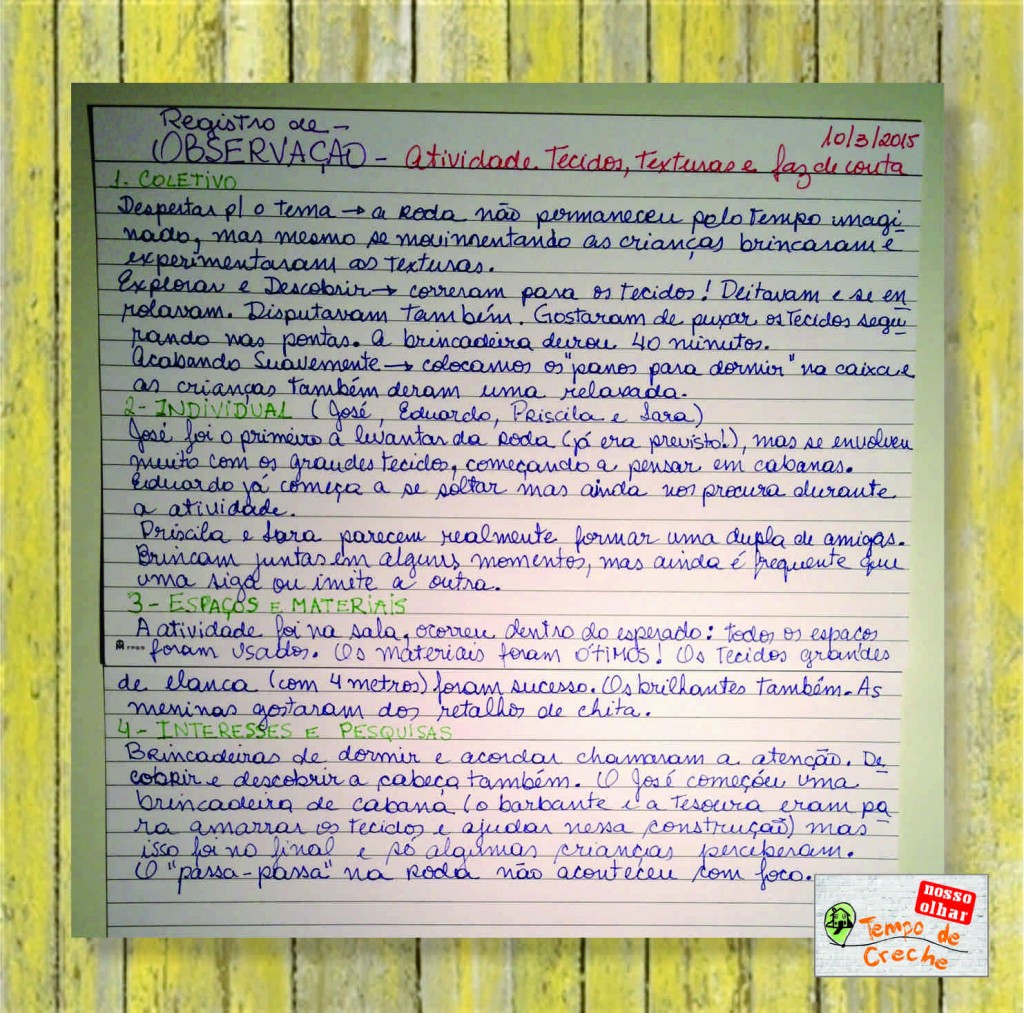 Registro de -
OBSERVAÇÃO - Atividade Tecidos, Texturas e faz de conta
10/3/2015
1. COLETIVO
Despertar p/ o tema → a roda não permaneceu pelo tempo imagi-
nado, mas mesmo se movimentando as crianças brincaram e
experimentaram as texturas.
Explorar e Descobrir → correram para os tecidos! Deitavam e se en
rolavam. Disputavam também. Gostaram de puxar os tecidos segu-
rando nas pontas. A brincadeira durou 40 minutos.
Acabando Suavemente → colocamos os "panos para dormir" na caixa e
as crianças também deram uma relaxada.
2- INDIVIDUAL (José, Eduardo, Priscila e Sara)
José foi o primeiro a levantar da roda (já era previsto!), mas se envolveu
muito com os grandes tecidos, começando a pensar em cabanas.
Eduardo já começa a se soltar mas ainda nos procura durante
a atividade.
Priscila e Sara parecem realmente formar uma dupla de amigas.
Brincam juntas em alguns momentos, mas ainda é frequente que
uma siga ou imite a outra.
3- ESPAÇOS E MATERIAIS
A atividade foi na sala, ocorreu dentro do esperado: todos os espaços
foram usados. Os materiais foram ÓTIMOS! Os Tecidos grandes
de elanca (com 4 metros) foram sucesso. Os brilhantes também. As
meninas gostaram dos retalhos de chita.
4- INTERESSES E PESQUISAS
Brincadeiras de dormir e acordar chamaram a atenção. De
cobrir e descobrir a cabeça também. O José começou uma
brincadeira de cabana (o barbante e a tesoura eram pa-
ra amarrar os tecidos e ajudar nessa construção) mas
isso foi no final e só algumas crianças perceberam.
O "passa-passa" na roda não aconteceu com foco.
nosso
olhar
Tempo de
Creche